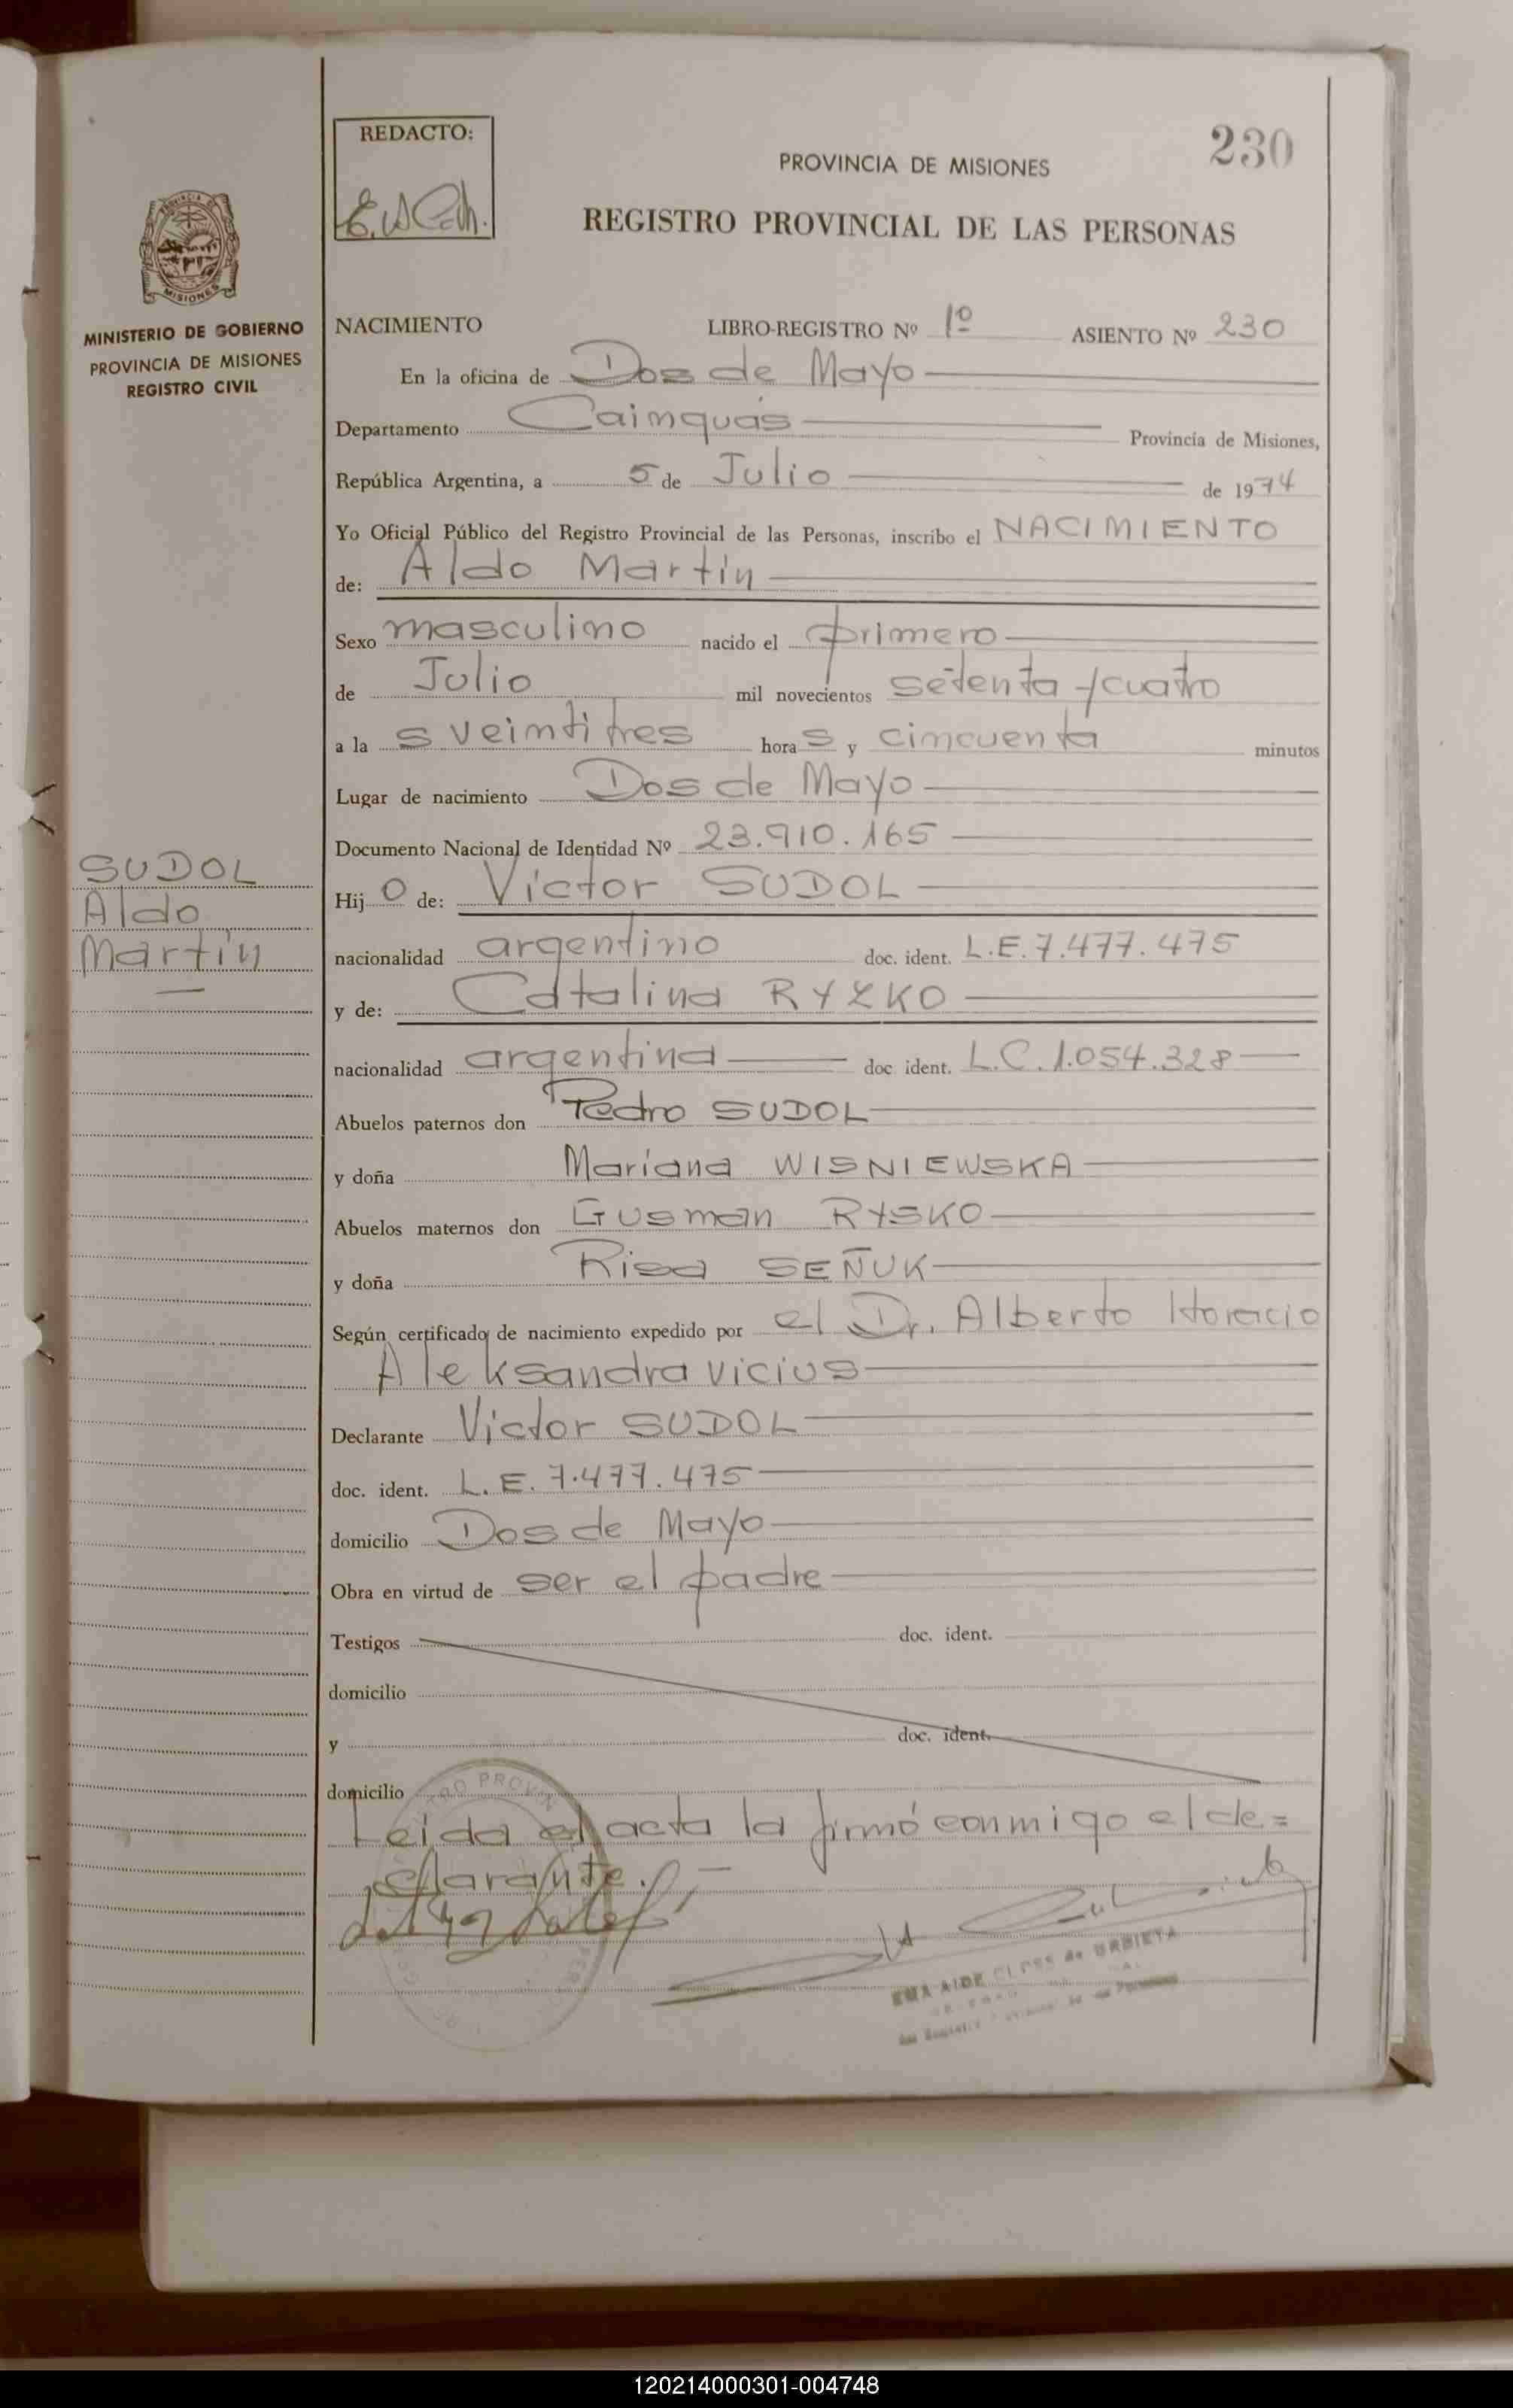 REDACTO:
230
PROVINCIA DE MISIONES
REGISTRO PROVINCIAL DE LAS PERSONAS
MISIONES
MINISTERIO DE GOBIERNO
PROVINCIA DE MISIONES
REGISTRO CIVIL
NACIMIENTO LIBRO-REGISTRO Nº 1º ASIENTO Nº 230
En la oficina de Dos de Mayo
Departamento Cainguás Provincia de Misiones,
República Argentina, a 5 de Julio de 1974
Yo Oficial Público del Registro Provincial de las Personas, inscribo el NACIMIENTO
de: Aldo Martín
Sexo masculino nacido el primero
de Julio mil novecientos setenta y cuatro
a la s veintitres hora s y cincuenta minutos
Lugar de nacimiento Dos de Mayo
Documento Nacional de Identidad Nº 23.910.165
SUDOL
Aldo
Martín
Hij o de: Victor SUDOL
nacionalidad argentino doc. ident. L.E. 7.477.475
y de: Catalina RYZKO
nacionalidad argentina doc. ident. L.C. 1.054.328
Abuelos paternos don Pedro SUDOL
y doña Mariana WISNIEWSKA
Abuelos maternos don Gusman RYSKO
y doña Risa SEÑUK
Según certificado de nacimiento expedido por el Dr. Alberto Horacio
Aleksandravicius
Declarante Victor SUDOL
doc. ident. L.E. 7.477.475
domicilio Dos de Mayo
Obra en virtud de ser el padre
Testigos doc. ident.
domicilio
y doc. ident.
domicilio
Leida el acta la firmó conmigo el de=
clarante.
EMA AIDE de URBIETA
120214000301-004748